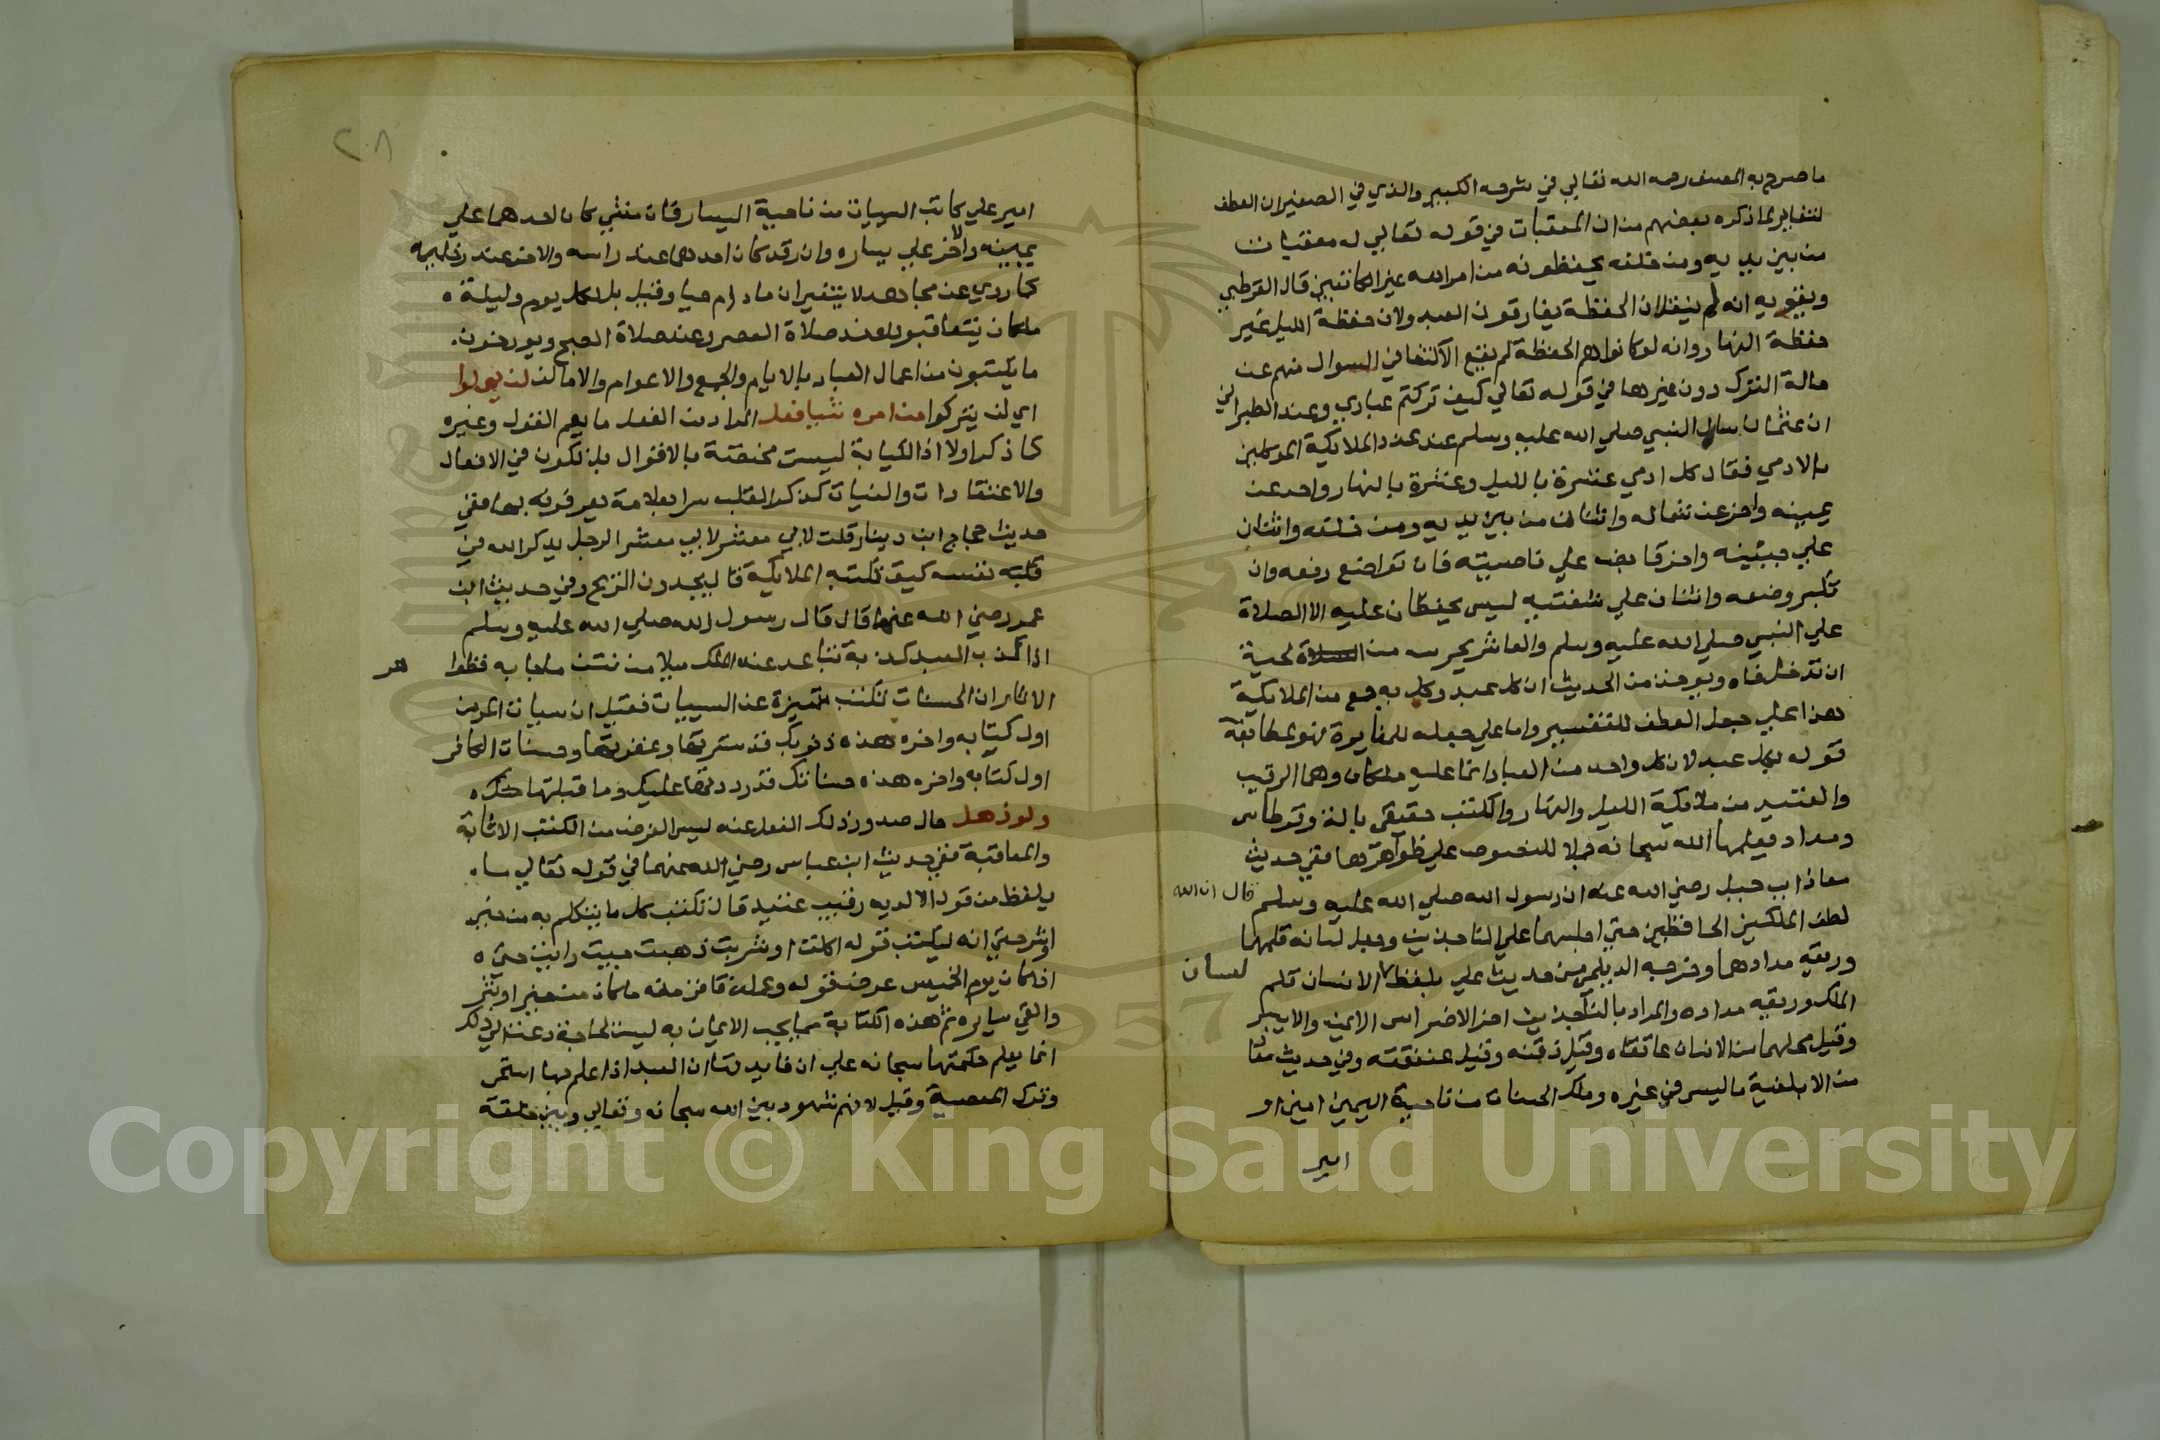 ما صرح به المصنف رحمه الله تعالي في شرحه الكبير والذي في الصغير ان العطف
للتغاير لما ذكره بعضهم من ان المعقبات في قوله تعالي له معقبات
من بين يديه ومن خلفه يحفظونه من امر الله غير الكاتبين قال القرطبي
ويقويه انه لم ينقل ان الحفظة يفارقون العبد ولان حفظة الليل غير
حفظة النهار وانه لو كانوا هم الحفظة لم يقع الاكتفا في السوال منهم عن
حالة الترك دون غيرها في قوله تعالي كيف تركتم عبادي وعند الطبراني
ان عثمان سال النبي صلي الله عليه وسلم عن عدد الملايكة الموكلين
بالادمي فقال لكل ادمي عشرة بالليل وعشرة بالنهار واحد عن
يمينه واخر عن شماله واثنان من بين يديه ومن خلفه واثنان
علي جبينه واخر قابض علي ناصيته فان تواضع رفعه وان
تكبر وضعه واثنان علي شفتيه ليس يحفظان عليه الا الصلاة
علي النبي صلي الله عليه وسلم والعاشر يحرسه من الحية
ان تدخل فاه ويوخذ من الحديث ان كل عبد وكل به جمع من الملايكة
هذا علي جعل العطف للتفسير واما علي جعله للمغايرة فهو
قوله بكل عبد لان كل واحد من العباد انما عليه ملكان وهما الرقيب
والعتيد من ملايكة الليل والنهار والكتب حقيقي بالة وقرطاس
ومداد يعلمها الله سبحانه حملا للنصوص علي ظواهرها ففي حديث
معاذ ابن جبل رضي الله عنه ان رسول الله صلي الله عليه وسلم قال ان الله
لطف الملكين الحافظين حتي اجلسهما علي الناجذين وجعل لسانه قلمهما
وريقه مدادهما وخرجه الديلمي من حديث علي بلفظ لسان الانسان قلم
الملك وريقه مداده والمراد بالناجذين اخر الاضراس الايمن والايسر
وقيل محلهما من الانسان عاتقاه وقيل ذقنه وقيل عنفقته وفي حديث
من الابلغية ما ليس في غيره وملك الحسنات من ناحية اليمين امين او
امير
٢٠٨
امير علي كاتب السيات من ناحية اليسار فان مشي كان احدهما علي
يمينه والاخر علي يساره وان رقد كان احدهما عند راسه والاخر عند رجليه
كما روي عن مجاهد لا يتغيران ما دام حيا وقيل بل لكل يوم وليلة
ملكان يتعاقبون عند صلاة العصر وعند صلاة الصبح ويورخون
ما يكتبون من اعمال العباد بالايام والجمع والاعوام والاماكن لن يهملوا
اي لن يتركوا من امره شيا فعل المراد من الفعل ما يعم القول وغيره
كما ذكر اولا اذ الكتابة ليست مختصة بالاقوال بل تكون في الافعال
والاعتقادات والنيات كذكر القلب سرا بعلامة يعرفونه بها ففي
حديث حجاج ابن دينار قلت لابي معشر الرجل يذكر الله في
نفسه كيف تكتبه الملايكة قال يجدون الريح وفي حديث ابن
عمر رضي الله عنهما قال قال رسول الله صلي الله عليه وسلم
اذا كذب العبد كذبة تباعد عنه الملك ميلا من نتن ما جا به
الاثار ان الحسنات تكتب متميزة عن السيات فقيل ان سيات المومن
اول كتابه واخره هذه ذنوبك قد سترتها وغفرتها وحسنات الكافر
اول كتابه واخره هذه حسناتك قد رددتها عليك وما قبلتها منك
ولو ذهل حال صدور ذلك الفعل عنه ليس الغرض من الكتب الاثابة
والمعاقبة ففي حديث ابن عباس رضي الله عنهما في قوله تعالي ما
يلفظ من قول الا لديه رقيب عتيد قال تكتب كل ما يتكلم به من خير
او شر حتي انه ليكتب قوله اكلت او شربت ذهبت جيت رايت حتي
اذا كان يوم الخميس عرض قوله وعمله فاقر منه ما كان من خير او شر
والقي سايره ثم هذه الكتابة مما يجب الايمان به ليست لحاجة دعت الي ذلك
انما يعلم حكمتها سبحانه علي ان فايدتها ان العبد اذا علم بها استحي
وترك المعصية وقيل لانهم شهود بين الله سبحانه وتعالي وبين خلقه
Copyright © King Saud University
1957